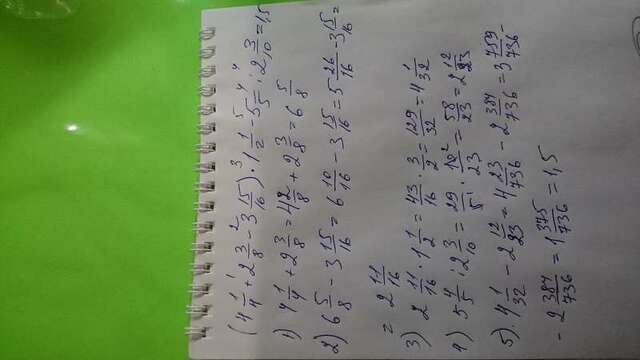 (4 1/4 + 2 3/8 - 3 15/16) · 1 1/2 - 5 4/5 : 2 3/10 = 1,5
1) 4 1/4 + 2 3/8 = 4 2/8 + 2 3/8 = 6 5/8
2) 6 5/8 - 3 15/16 = 6 10/16 - 3 15/16 = 5 26/16 - 3 15/16 =
= 2 11/16
3) 2 11/16 · 1 1/2 = 43/16 · 3/2 = 129/32 = 4 1/32
4) 5 4/5 : 2 3/10 = 29/5 · 10/23 = 58/23 = 2 12/23
5). 4 1/32 - 2 12/23 = 4 23/736 - 2 384/736 = 3 759/736 -
- 2 384/736 = 1 375/736 = 1,5